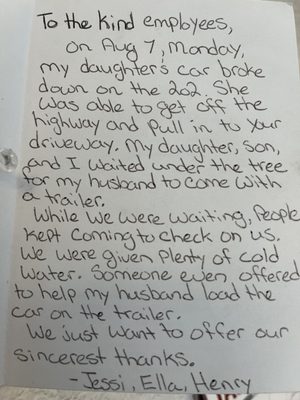 To the kind employees,
On Aug 7, Monday,
my daughter's car broke
down on the 202. She
was able to get off the
highway and pull in to your
driveway. My daughter, son,
and I waited under the tree
for my husband to come with
a trailer.
While we were waiting, People
kept coming to check on us.
We were given plenty of cold
water. Someone even offered
to help my husband load the
car on the trailer.
We just want to offer our
sincerest thanks.
- Jessi, Ella, Henry